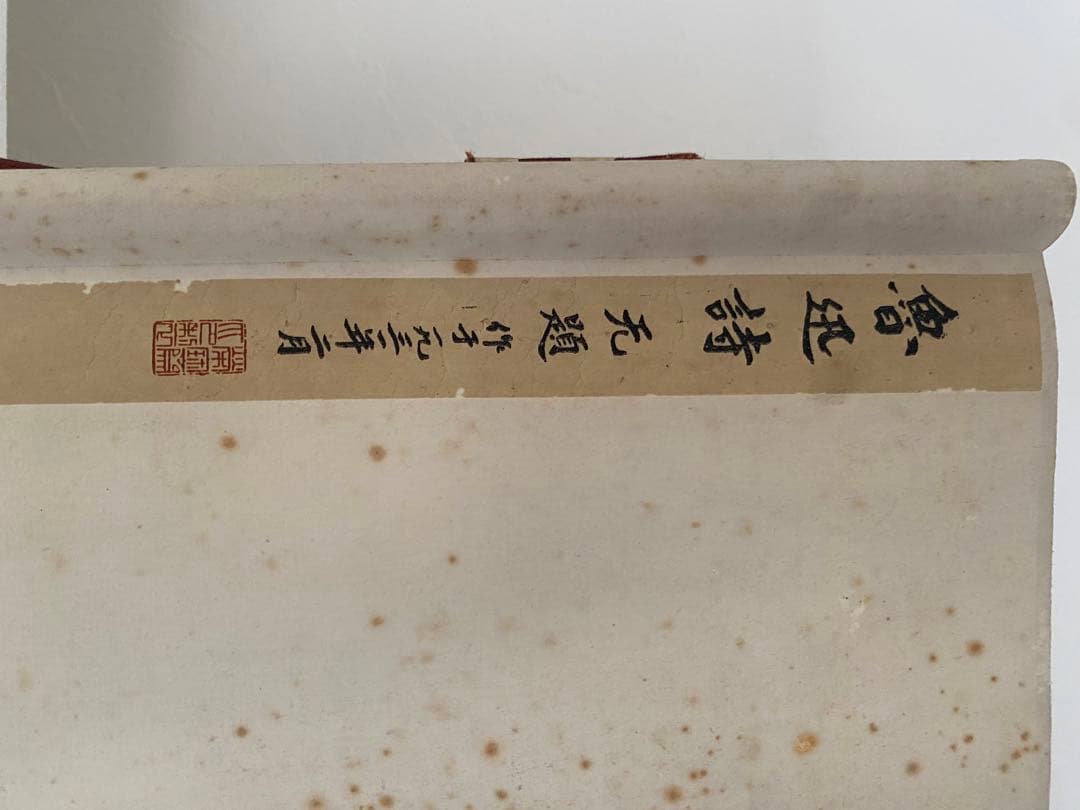 魯迅詩 无題 作于一九三一年二月